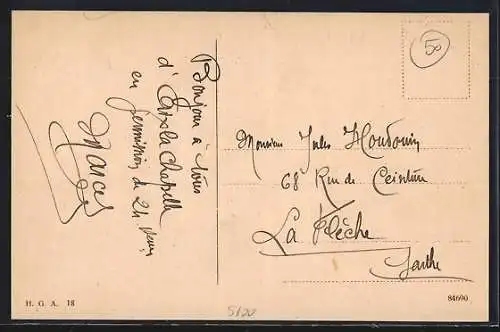 Bonjour à tous
d'Aix la Chapelle
en permission de 24 heures
Marcel
50
Monsieur Jules Houdouin
68 Rue de Ceinture
La Flèche
Sarthe
H. G. A. 18
5/20
84690